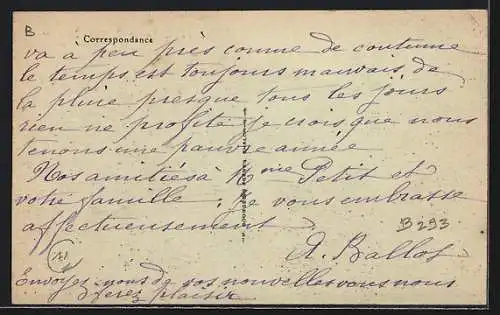 B
Correspondance
va à peu près comme de coutume
le temps est toujours mauvais de
la pluie presque tous les jours
rien ne profite je crois que nous
tenons une pauvre année
Nos amitiés à Mme Petit et
votre famille; je vous embrasse
affectueusement
B293
A. Ballot
Envoyez-nous de vos nouvelles vous nous
ferez plaisir